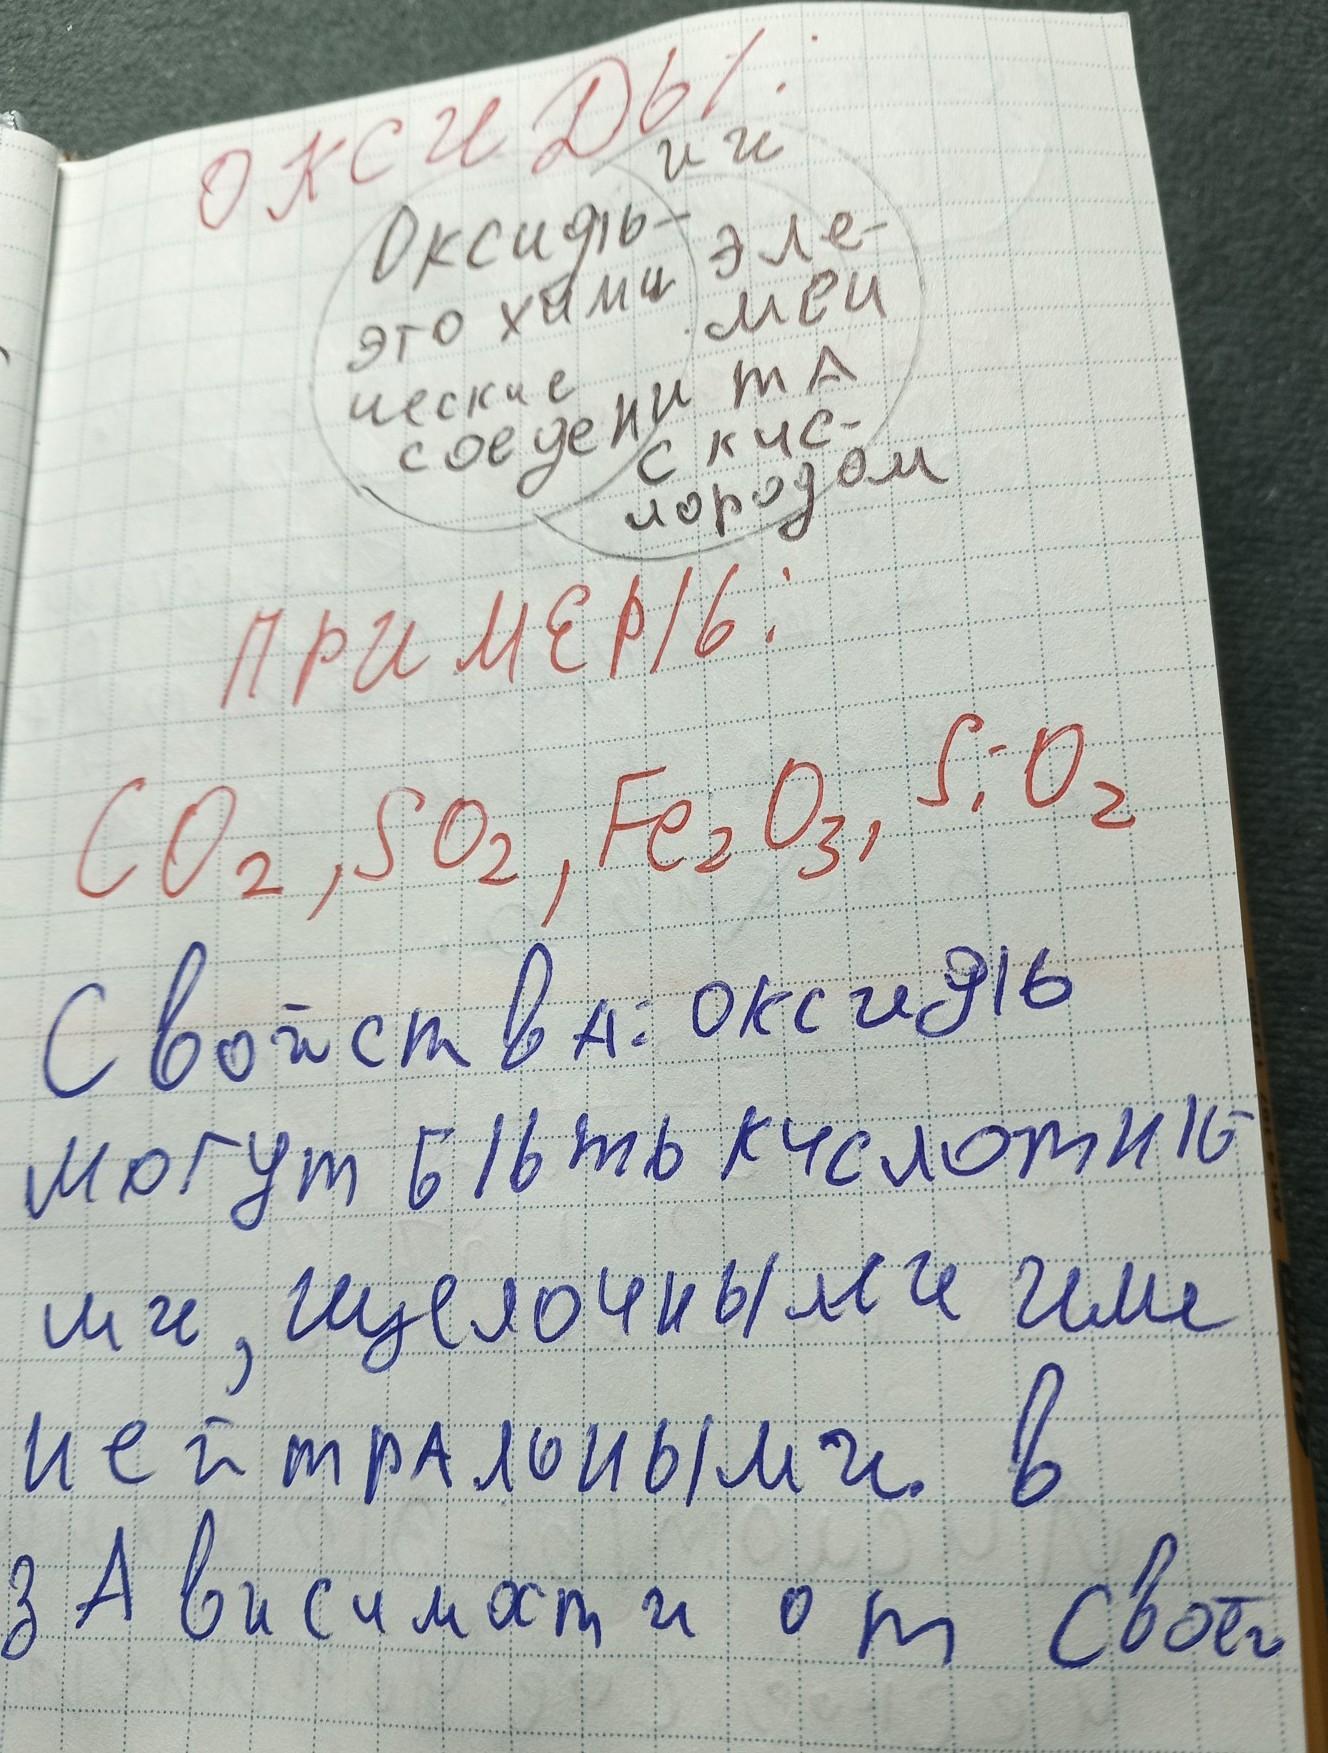 ОКСИДЫ:
Оксиды-
это хими
ческие
соедени
ии
эле-
мен
та
с кис-
лородом
ПРИМЕРЫ:
CO₂, SO₂, Fe₂O₃, SiO₂
Свойства: оксиды
могут быть кислотны-
ми, щелочными или
нейтралоными. в
зависимости от своей